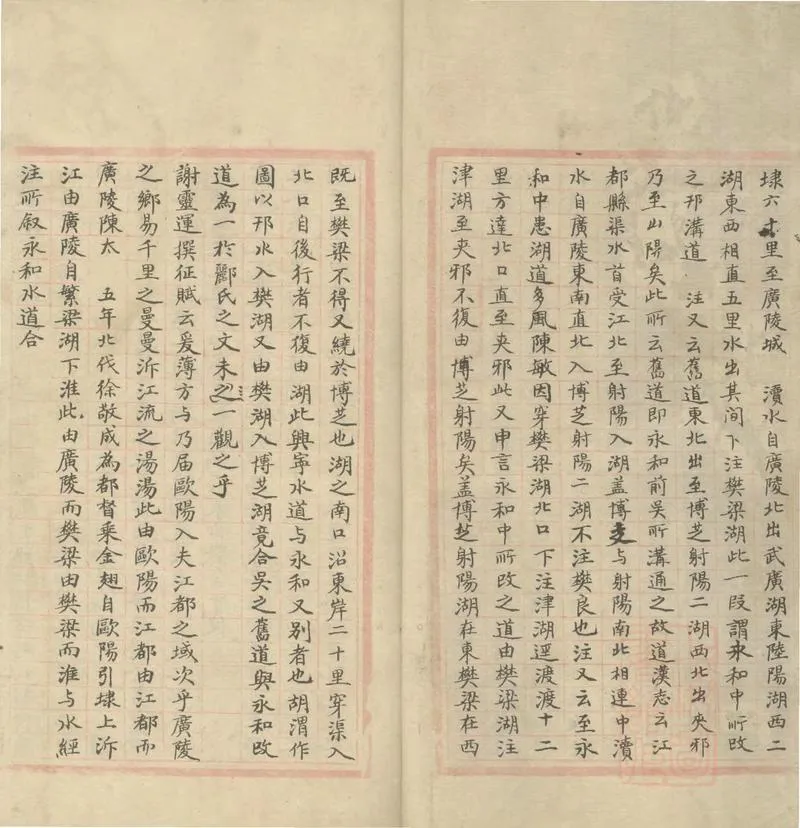 埭六十里至廣陵城　瀆水自廣陵北出武廣湖東陸陽湖西二
湖東西相直五里水出其間下注樊梁湖此一段謂永和中所改
之邗溝道　注又云舊道東北出至博芝射陽二湖西北出夾邪
乃至山陽矣此所云舊道即永和前吳所溝通之故道漢志云江
都縣渠水首受江北至射陽入湖蓋博支与射陽南北相連中瀆
水自廣陵東南直北入博芝射陽二湖不注樊良也注又云至永
和中患湖道多風陳敏因穿樊梁湖北口下注津湖逕渡渡十二
里方達北口直至夾邪此又申言永和中所改之道由樊梁湖注
津湖至夾邪不復由博芝射陽矣蓋博芝射陽湖在東樊梁在西
既至樊梁不得又繞於博芝也湖之南口沿東岸二十里穿渠入
北口自後行者不復由湖此興寧水道与永和又別者也胡渭作
圖以邗水入樊湖又由樊湖入博芝湖竟合吳之舊道與永和改
道為一於酈氏之文未之一觀之乎
謝靈運撰征賦云爰薄方与乃届歐陽入夫江都之域次乎廣陵
之鄉易千里之曼曼泝江流之湯湯此由歐陽而江都由江都而
廣陵陳太　五年北伐徐敬成為都督乘金翅自歐陽引埭上泝
江由廣陵自繁梁湖下淮此由廣陵而樊梁由樊梁而淮与水經
注所敘永和水道合